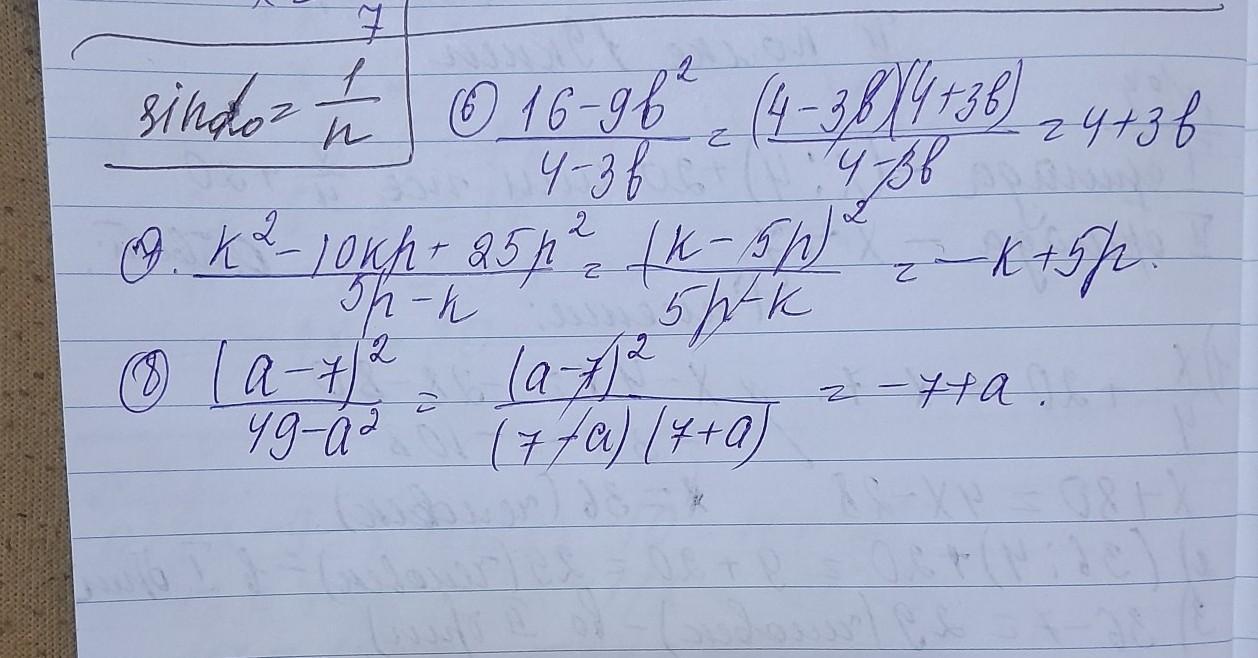 7
sin α₀ = 1/n
⑥ (16-9b²)/(4-3b) = ((4-3b)(4+3b))/(4-3b) = 4+3b
⑦. (k²-10kp+25p²)/(5p-k) = (k-5p)²/(5p-k) = -k+5p.
⑧ (a-7)²/(49-a²) = (a-7)²/((7-a)(7+a)) = -7+a.